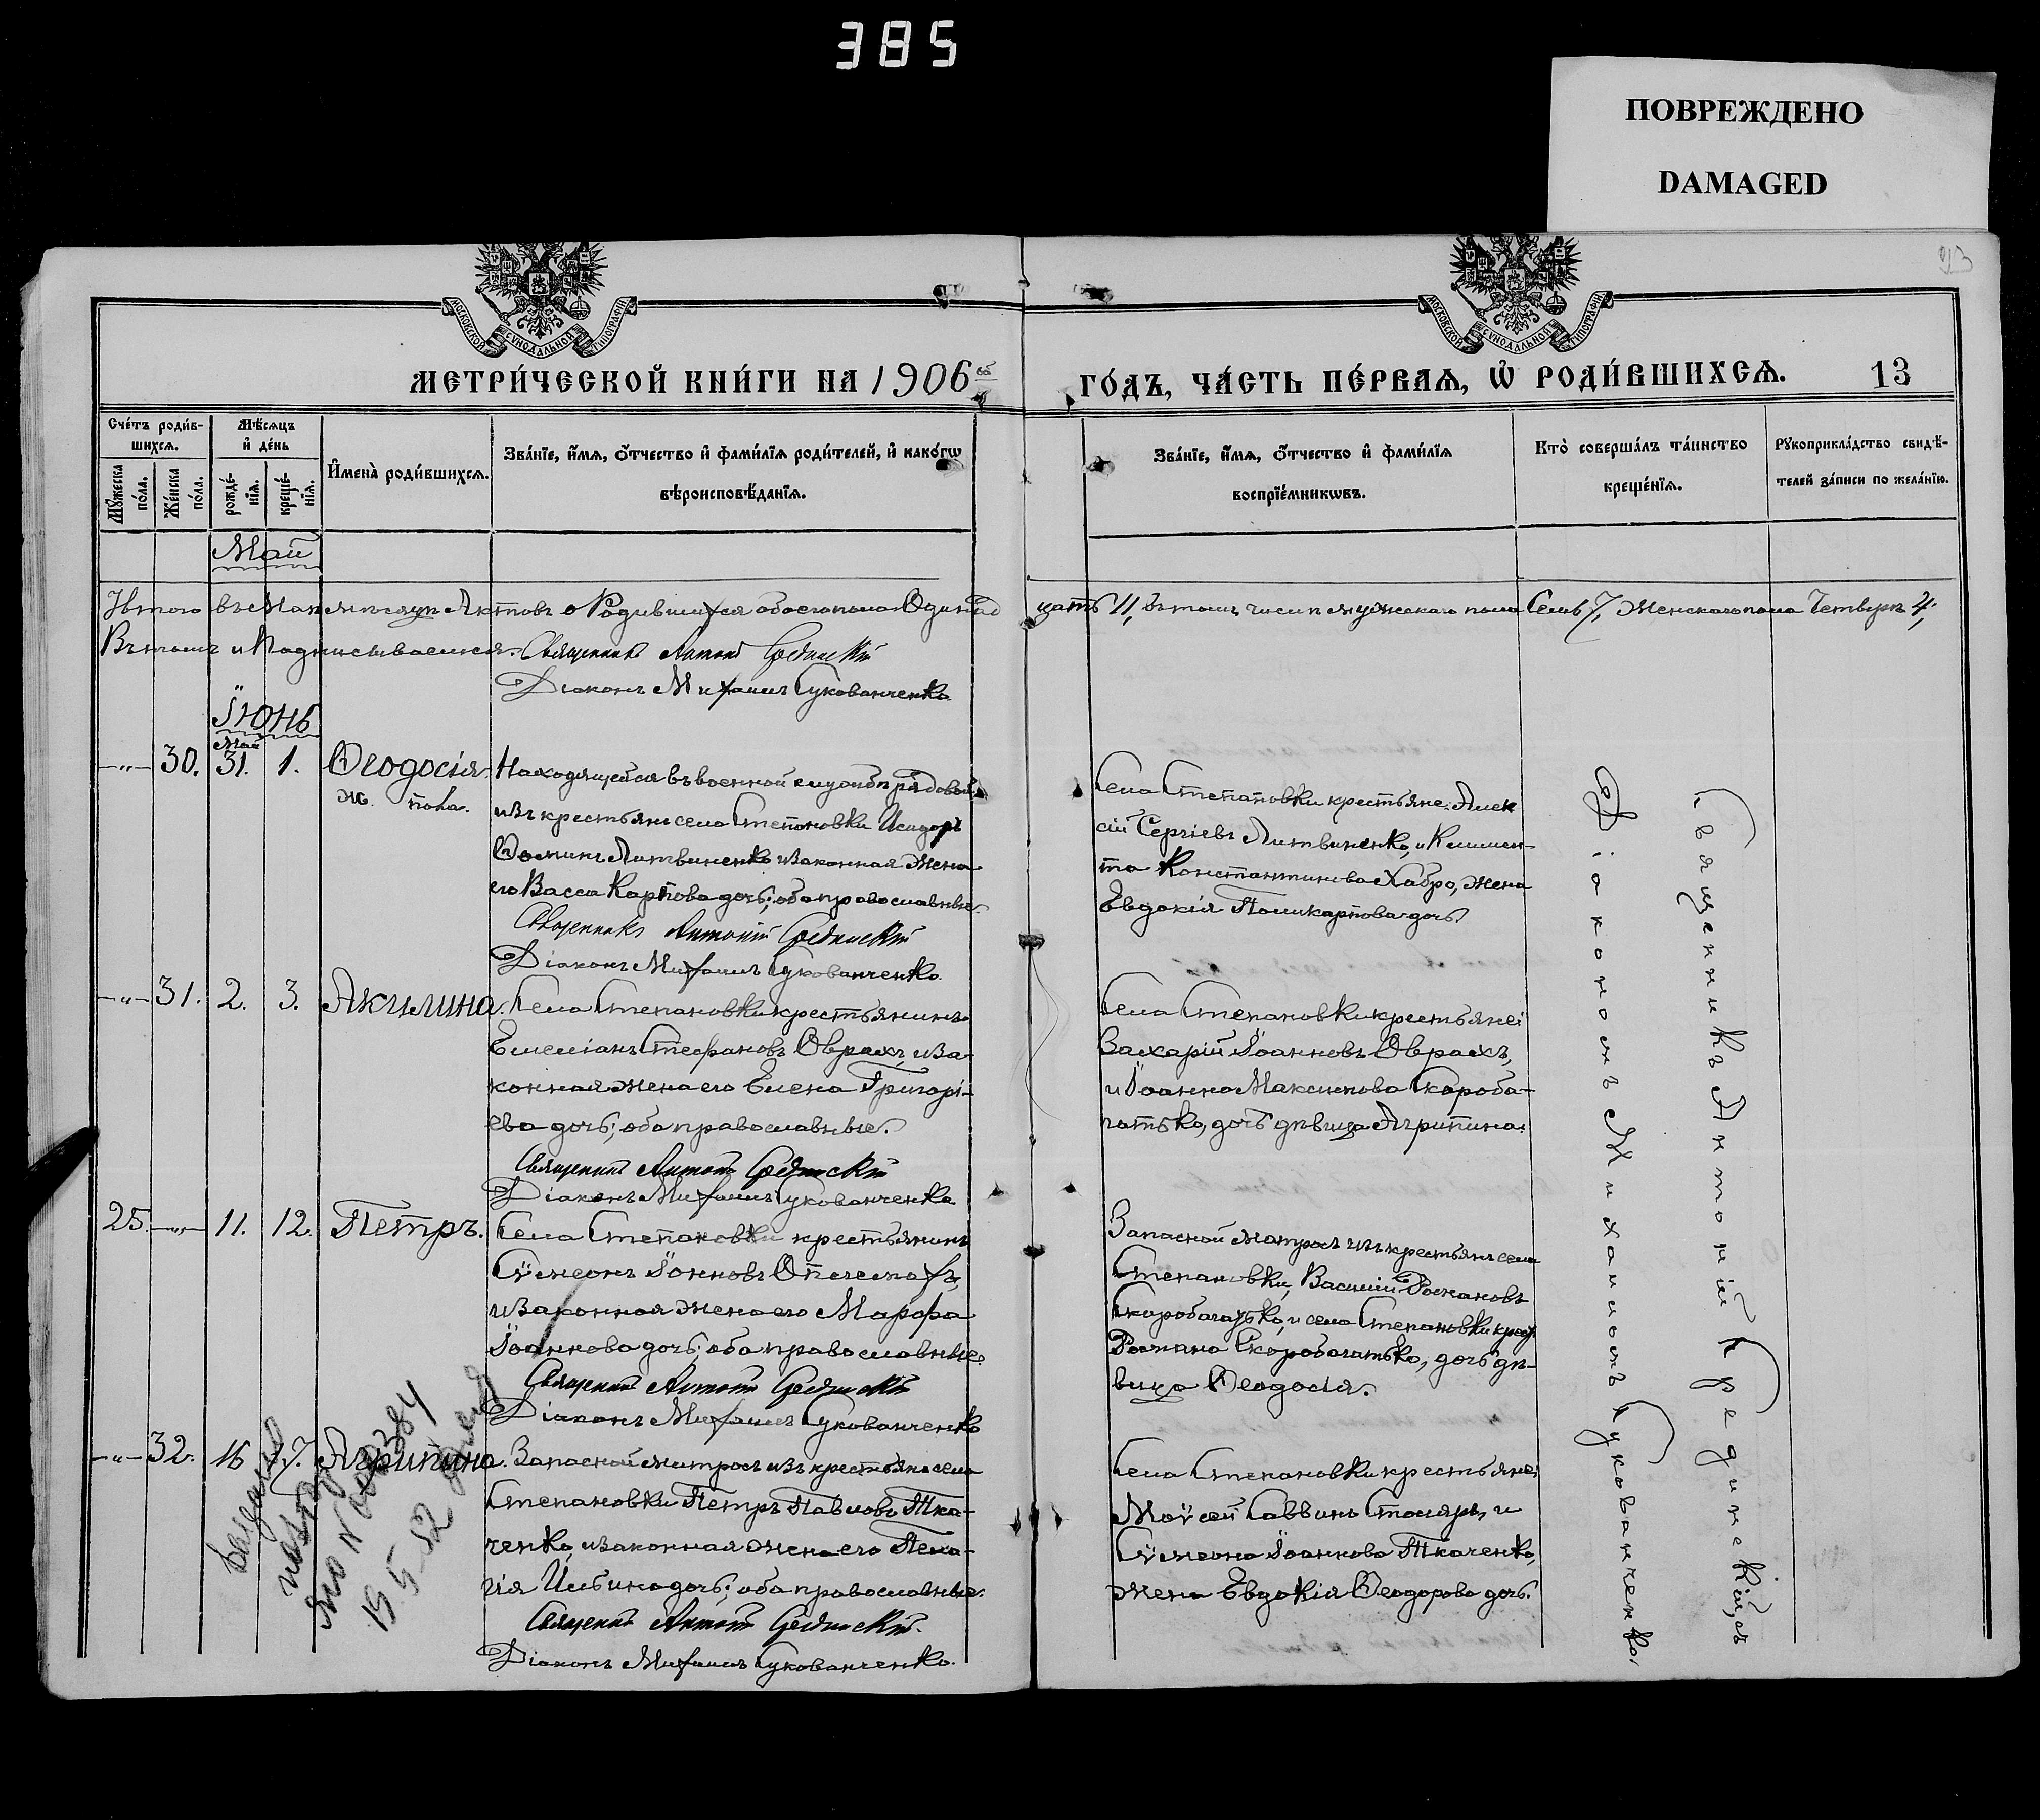 385
ПОВРЕЖДЕНО
DAMAGED
МОСКОВСКОЙ СѴНОДАЛЬНОЙ ТИПОГРАФІИ
МОСКОВСКОЙ СѴНОДАЛЬНОЙ ТИПОГРАФІИ
МЕТРИ́ЧЕСКОЙ КНИ́ГИ НА 1906 ГО́ДЪ, ЧА́СТЬ ПЕ́РВАѦ, Ѡ҆ РОДИ́ВШИХСѦ. 13
Сче́тъ роди́в-
шихсѧ.
Мꙋ́жеска по́ла.
Же́нска по́ла.
Мѣ́сѧцъ
и҆ де́нь
рожде́-
нїѧ.
креще́-
нїѧ.
И҆мена̀ роди́вшихсѧ.
Зва́нїе, и҆́мѧ, ѻ҆́тчество и҆ фами́лїѧ роди́телей, и҆ како́гѡ
вѣроисповѣ́данїѧ.
Зва́нїе, и҆́мѧ, ѻ҆́тчество и҆ фами́лїѧ
воспрїе́мникѡвъ.
Кто̀ соверша́лъ та́инство
креще́нїѧ.
Рꙋкоприкла́дство свидѣ́-
телей за́писи по жела́нїю.
Май
Итого въ Маѣ мѣсяцѣ Актовъ о Родившихся обоего пола Одинад
цать 11, въ томъ числѣ мужескаго пола Семь 7, Женскаго пола Четыре 4,
Въ томъ и Подписываемся: Священникъ Антоній Срединскій
Діаконъ Михаилъ Сукованченко.
Іюнь
Май
30. 31. 1. Ѳеодосія
ж. пола.
Находящейся въ военной службѣ рядовой
изъ крестьянъ села Степановки Исидоръ
Ѳоминъ Литвиненко и законная жена
его Васса Карпова дочь; оба православные.
Священникъ Антоній Срединскій
Діаконъ Михаилъ Сукованченко.
Села Степановки крестьяне: Алек
сій Сергіевъ Литвиненко, и Климен-
та Константинова Хабро, жена
Евдокія Поликарпова дочь.
31. 2. 3. Акилина.
Села Степановки крестьянинъ
Емеліанъ Стефановъ Оврахъ, и за-
конная жена его Елена Григорі-
ева дочь; оба православные.
Священникъ Антоній Срединскій
Діаконъ Михаилъ Сукованченко
Села Степановки крестьяне:
Захарій Іоанновъ Оврахъ,
и Іоанна Максимова Скороба-
гатько, дочь дѣвица Агрипина.
25. 11. 12. Петръ.
Села Степановки крестьянинъ
Сѵмеонъ Іоанновъ
и законная жена его Марфа
Іоаннова дочь; оба православные.
Священникъ Антоній Срединскій
Діаконъ Михаилъ Сукованченко
Запасной матросъ изъ крестьянъ села
Степановки, Василій Романовъ
Скоробагатько, и села Степановки крест.
Романа Скоробагатько, дочь дѣ-
вица Ѳеодосія.
32. 16 17. Агрипина.
Запасной матросъ изъ крестьянъ села
Степановки Петръ Павловъ Тка-
ченко, и законная жена его Пела-
гія Ильина дочь; оба православные.
Священникъ Антоній Срединскій.
Діаконъ Михаилъ Сукованченко.
Села Степановки крестьяне:
Моѵсей Саввинъ Столяръ, и
Сѵмеона Іоаннова Ткаченко,
жена Евдокія Ѳеодорова дочь.
Священникъ Антоній Срединскій, съ
Діакономъ Михаиломъ Сукованченко,